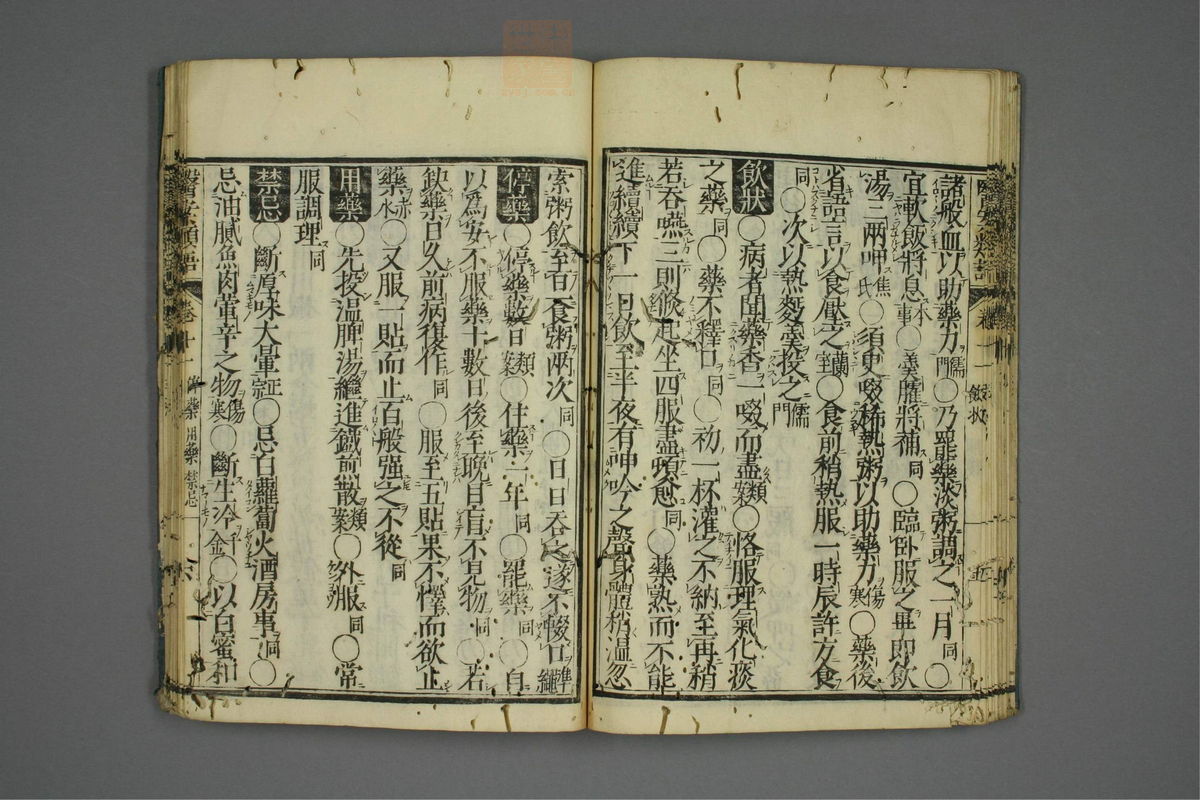 諸般血以助藥力儒門〇乃罷藥淡粥調之一月同〇
宜軟飯將息本事〇羹臛將補同〇臨卧服之畢即飲
湯三兩呷焦氏〇須臾啜稀熱粥以助藥力傷寒〇藥後
省語言以食壓之蘭室〇食前稍熱服一時辰許方食
同〇次以熱麪羹投之儒門
飲狀〇病者聞藥香一啜而盡類案〇恪服理氣化痰
之藥同〇藥不釋口同〇初一杯灌之不納至再稍
若吞嚥三則起坐四服盡頓愈同〇藥熟而不能
進續續下一日飲至半夜有呻吟之聲身體稍溫忽
索粥飲至百食粥兩次同〇日日吞之遂不輟口準繩
停藥〇停藥數日類案〇住藥一年同〇罷藥同〇自
以為安不服藥十數日後至晚目盲不見物同〇若
缺藥日久前病復作同〇服至五貼果不懌而欲止
藥赤水〇又服一貼而止百般強之不從同
用藥〇先投溫脾湯繼進鍼煎散類案〇外服同〇常
服調理同
禁忌〇斷厚味大葷正宗〇忌白蘿蔔火酒房事同〇
忌油膩魚肉葷辛之物傷寒〇斷生冷千金〇以白蜜和
卷十一
停藥 用藥 禁忌